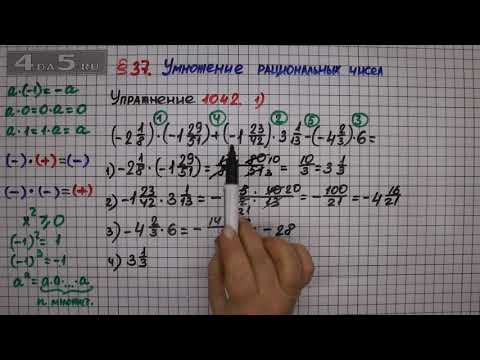 4DA5.RU
§37. Умножение рациональных чисел
Упражнение 1042. 1)
a·(-1)=-a
a·0=0·a=0
a·1=1·a=a
(-)·(+)=(-)
(-)·(-)=(+)
x²⩾0
(-1)²=1
(-1)³=-1
aⁿ=a·a·...·a
n множит.
① ④ ② ⑤ ③
(-2 1/8)·(-1 29/51)+(-1 23/42)·3 1/13-(-4 2/3)·6=
1) -2 1/8·(-1 29/51)= = 10/3=3 1/3
2) -1 23/42·3 1/13=- =-100/21=-4 16/21
3) -4 2/3·6=-14 -28
4) 3 1/3